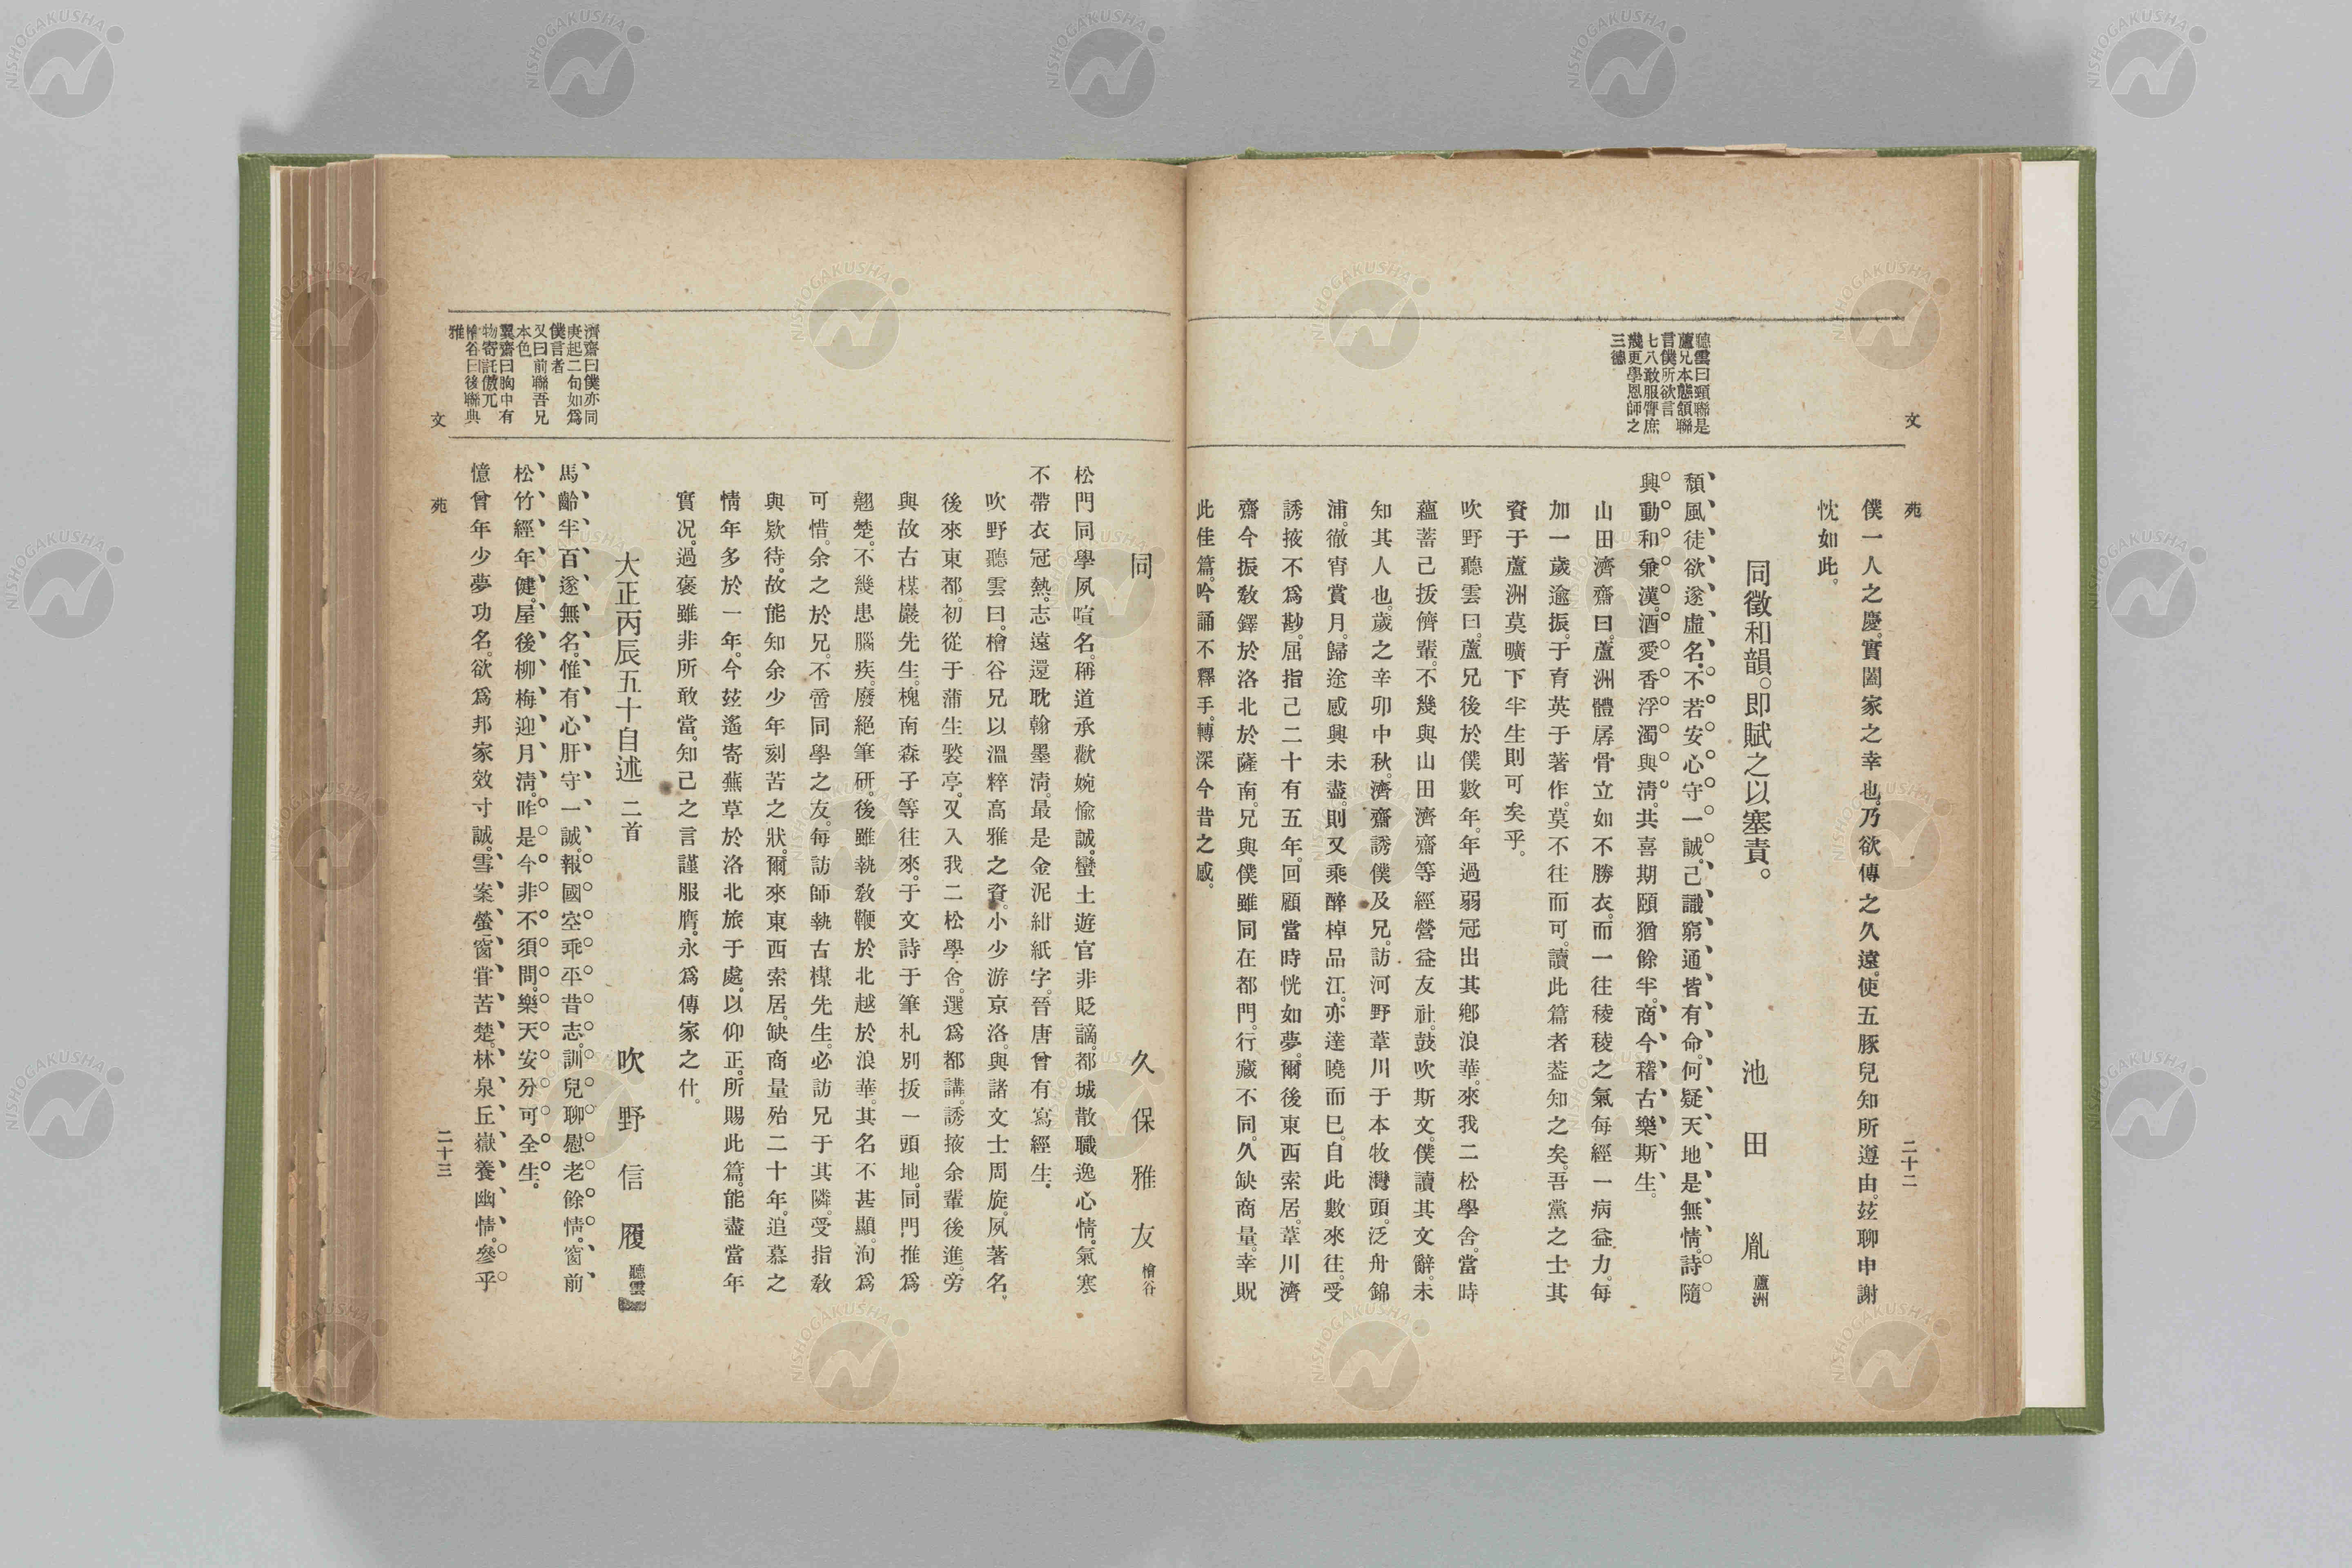 文苑
二十二
聽雲曰頸聯是
蘆兄本態頷聯
言僕所欲言
七八敢服膺庶
幾更學恩師之
三德
僕一人之慶。實闔家之幸也。乃欲傳之久遠。使五豚兒知所遵由。玆聊申謝
忱如此。
同徵和韻。即賦之以塞責。 池田胤 蘆洲
頽風徒欲遂虛名。不若安心守一誠。己識窮通皆有命。何疑天地是無情。詩隨
興動和兼漢。酒愛香浮濁與淸。共喜期頤猶餘半。商今稽古樂斯生。
山田濟齋曰。蘆洲體孱骨立如不勝衣。而一往稜稜之氣每經一病益力。每
加一歲逾振。于育英于著作。莫不往而可。讀此篇者葢知之矣。吾黨之士其
資于蘆洲莫曠下半生則可矣乎。
吹野聽雲曰。蘆兄後於僕數年。年過弱冠出其鄕浪華。來我二松學舍。當時
蘊蓄己拔儕輩。不幾與山田濟齋等經營益友社。鼓吹斯文。僕讀其文辭。未
知其人也。歲之辛卯中秋。濟齋誘僕及兄。訪河野葦川于本牧灣頭。泛舟錦
浦。徹宵賞月。歸途感興未盡。則又乘醉棹品江。亦達曉而巳。自此數來往。受
誘掖不爲尠。屈指己二十有五年。回顧當時恍如夢。爾後東西索居。葦川濟
齋今振敎鐸於洛北於薩南。兄與僕雖同在都門。行藏不同。久缺商量。幸貺
此佳篇。吟誦不釋手。轉深今昔之感。
同 久保雅友 檜谷
松門同學夙喧名。稱道承歡婉愉誠。蠻土遊官非貶謫。都城散職逸心情。氣寒
不帶衣冠熱。志遠還耽翰墨淸。最是金泥紺紙字。晉唐曾有寫經生。
吹野聽雲曰。檜谷兄以溫粹高雅之資。小少游京洛。與諸文士周旋。夙著名。
後來東都。初從于蒲生褧亭。又入我二松學舍。選爲都講。誘掖余輩後進。旁
與故古楳巖先生。槐南森子等往來。于文詩于筆札別拔一頭地。同門推爲
翹楚。不幾患腦疾。廢絕筆硏。後雖執敎鞭於北越於浪華。其名不甚顯。洵爲
可惜。余之於兄。不啻同學之友。每訪師執古楳先生。必訪兄于其隣。受指敎
與欵待。故能知余少年刻苦之狀。爾來東西索居。缺商量殆二十年。追慕之
情年多於一年。今玆遙寄蕪草於洛北旅于處。以仰正。所賜此篇。能盡當年
實况。過褒雖非所敢當。知己之言謹服膺。永爲傳家之什。
大正丙辰五十自述 二首 吹野信履 聽雲
馬齡半百遂無名。惟有心肝守一誠。報國空乖平昔志。訓兒聊慰老餘情。窗前
松竹經年健。屋後柳梅迎月淸。昨是今非不須問。樂天安分可全生。
憶曾年少夢功名。欲爲邦家效寸誠。雪案螢窗甞苦楚。林泉丘嶽養幽情。參乎
濟齋曰僕亦同
庚起二句如爲
僕言者
又曰前聯吾兄
本色
翼齋曰胸中有
物寄託傲兀
檜谷曰後聯典
雅
文苑
二十三